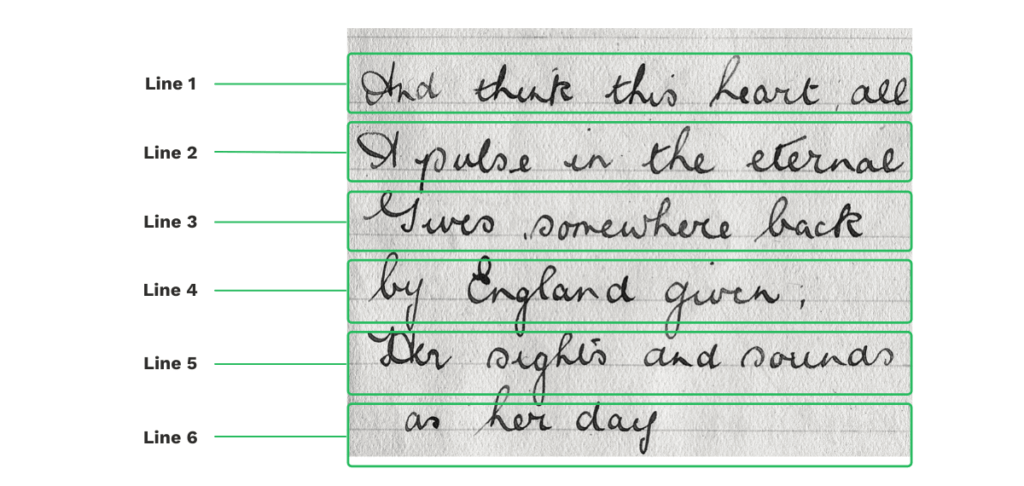 Line 1 And think this heart all
Line 2 A pulse in the eternal
Line 3 Gives somewhere back
Line 4 by England given;
Line 5 Her sights and sounds
Line 6 as her day